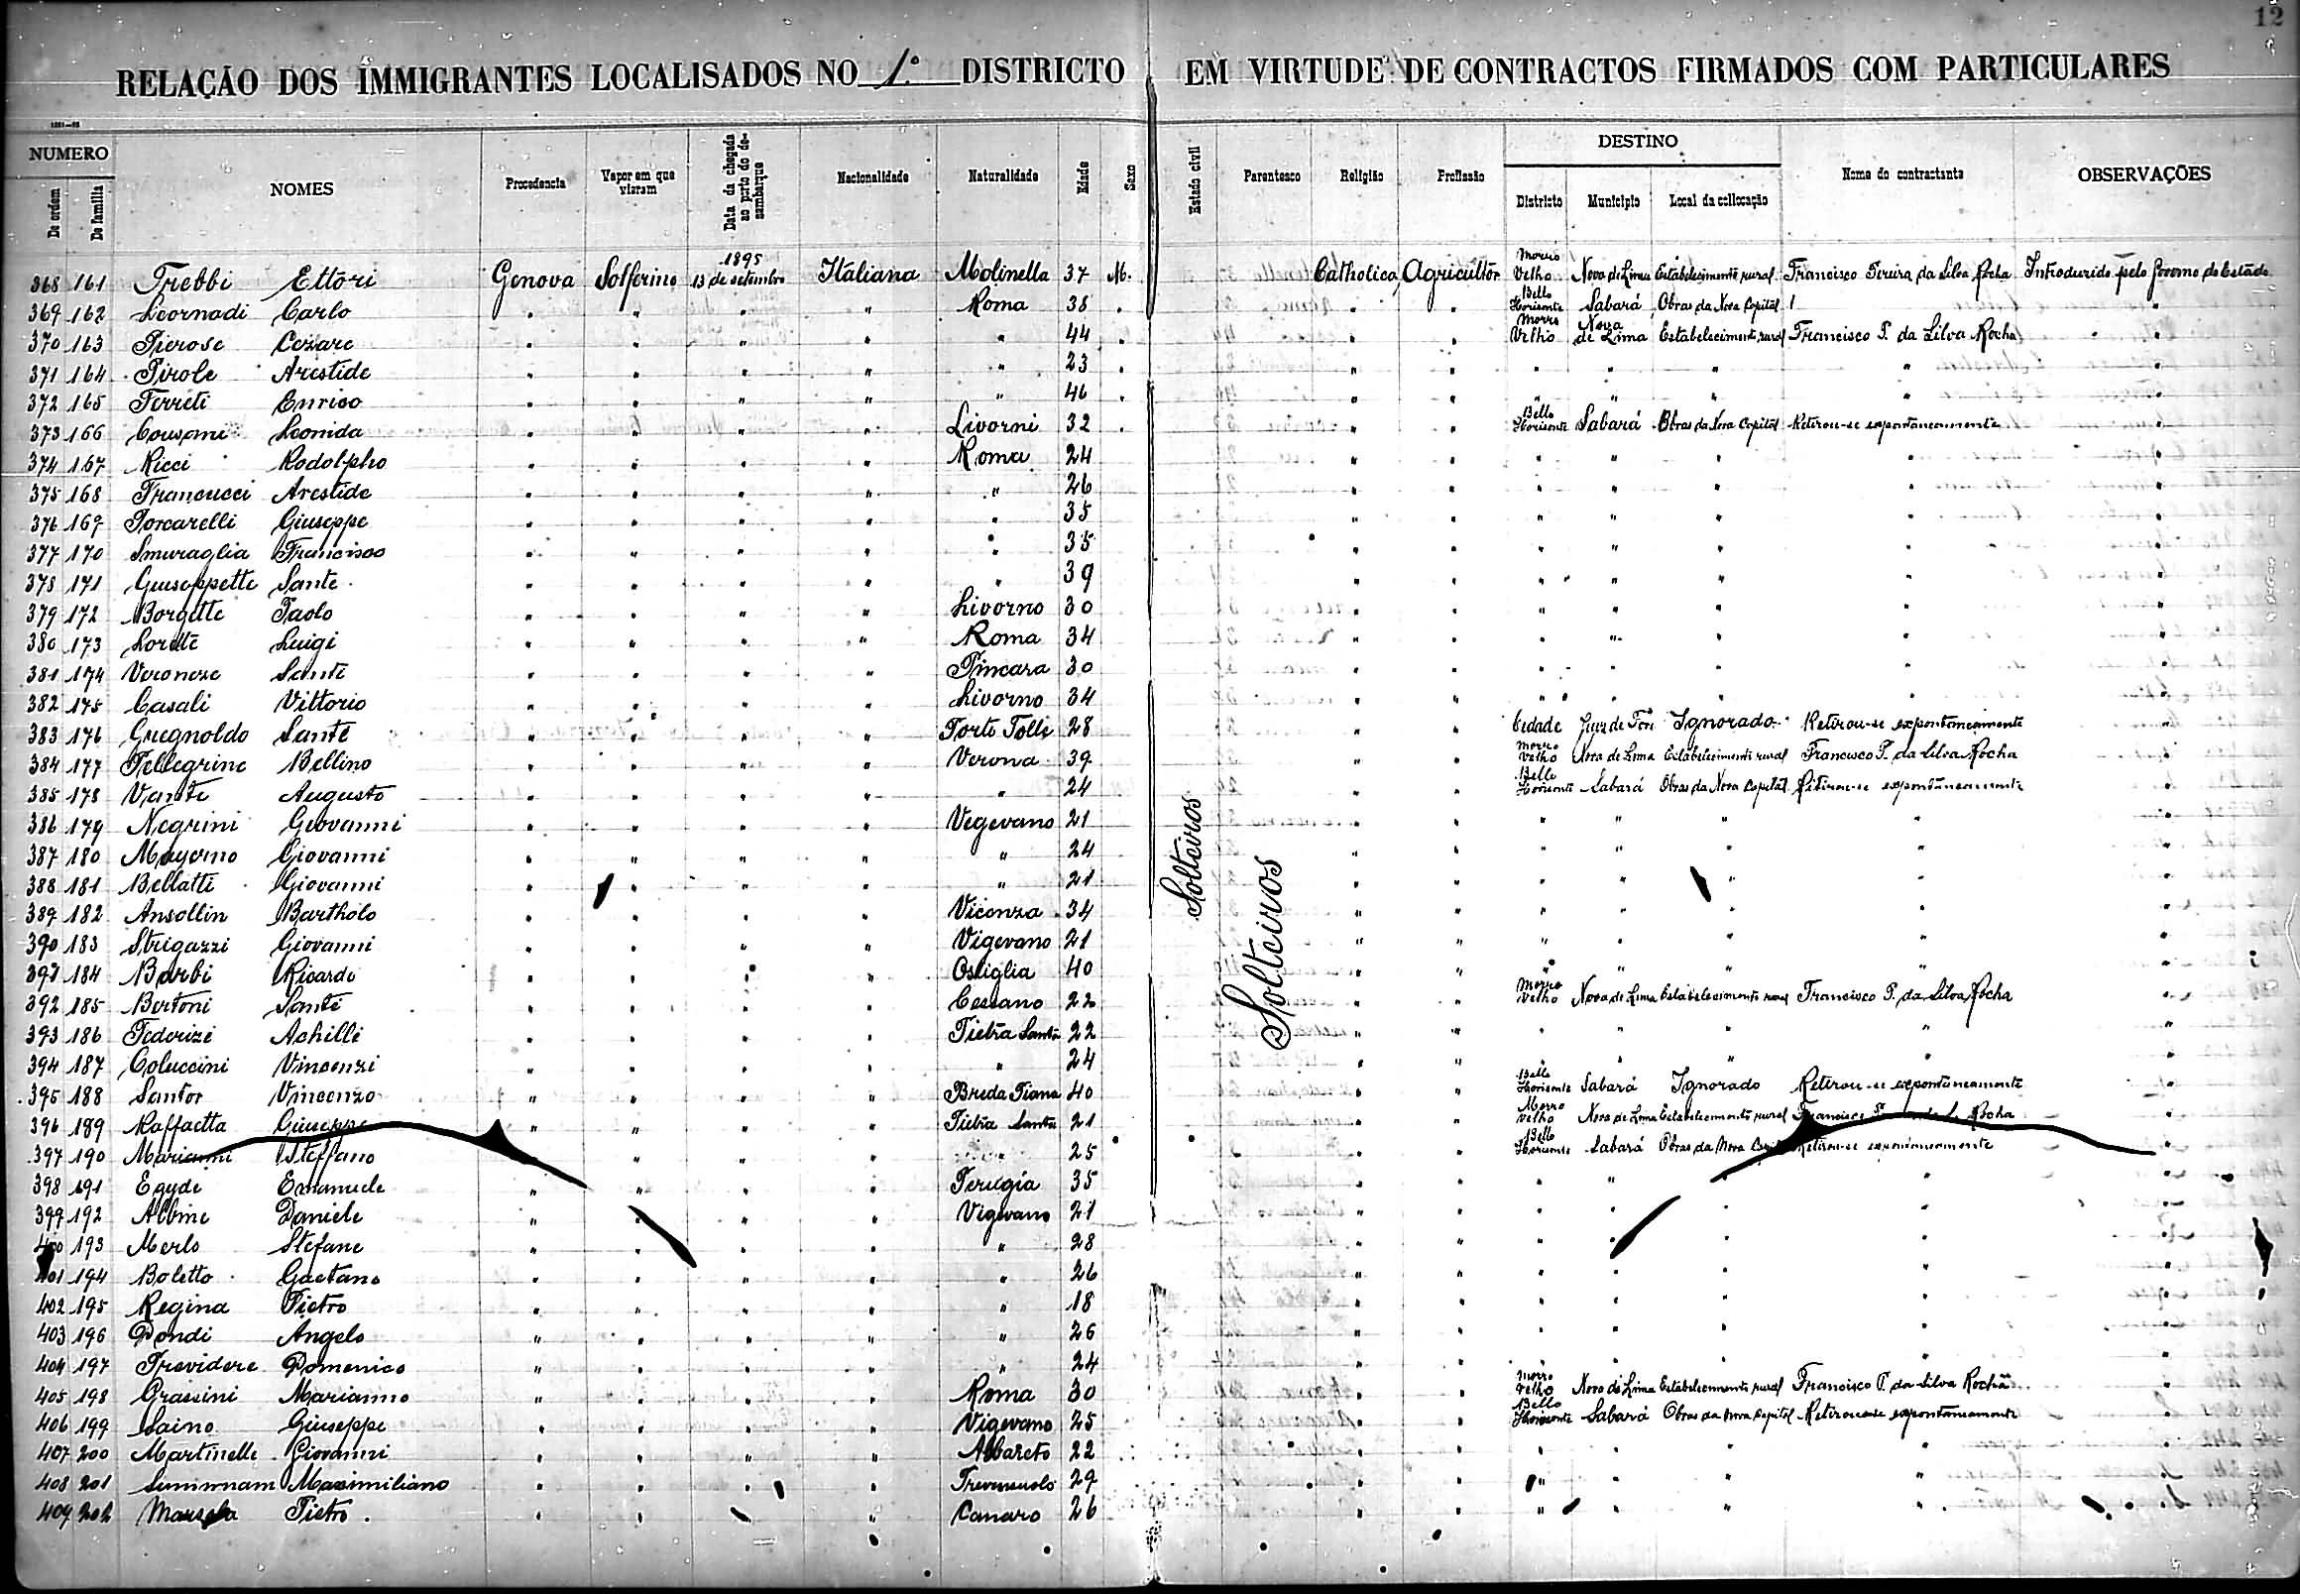 12
RELAÇÃO DOS IMMIGRANTES LOCALISADOS NO 1.º DISTRICTO EM VIRTUDE DE CONTRACTOS FIRMADOS COM PARTICULARES
NUMERO
De ordem
De familia
NOMES
Procedencia
Vapor em que vieram
Data da chegada ao porto do desembarque
Nacionalidade
Naturalidade
Edade
Sexo
Estado civil
Parentesco
Religião
Profissão
DESTINO
Districto
Municipio
Local da collocação
Nome do contractante
OBSERVAÇÕES
368 161 Trebbi Ettori Genova Solferino 1895 13 de setembro Italiana Molinella 37 M. Catholica Agricultor Morro Velho Nova de Lima Estabelecimento rural Francisco Pereira da Silva Rocha Introduzido pelo Governo do Estado
369 162 Leornadi Carlo " " " " Roma 38 " " " Bello Horisonte Sabará Obras da Nova Capital "
370 163 Pierose Cezare " " " " " 44 " " " Morro Velho Nova de Lima Estabelecimento rural Francisco P. da Silva Rocha "
371 164 Pirole Arestide " " " " " 23 " " " " " " " "
372 165 Ferreti Enrico " " " " " 46 " " " " " " " "
373 166 Leonida " " " " Livorni 32 " " " Bello Horisonte Sabará Obras da Nova Capital Retirou-se expontaneamente "
374 167 Ricci Rodolpho " " " " Roma 24 " " " " " " "
375 168 Francucci Arestide " " " " " 26 " " " " " " "
376 169 Porcarelli Giuseppe " " " " " 35 " " " " " " "
377 170 Smuraglia Francisco " " " " " 35 " " " " " " "
378 171 Giuseppette Sante " " " " " 39 " " " " " " "
379 172 Borgette Paolo " " " " Livorno 30 " " " " " " "
380 173 Lorette Luigi " " " " Roma 34 " " " " " " "
381 174 Veroneze Sante " " " " Pincara 30 " " " " " " "
382 175 Casali Vittorio " " " " Livorno 34 " " " " " " "
383 176 Gregnoldo Sante " " " " Porto Tolle 28 " " Cidade Juiz de Fóra Ignorado Retirou-se expontaneamente "
384 177 Pellegrine Bellino " " " " Verona 39 " " Morro Velho Nova de Lima Estabelecimento rural Francisco P. da Silva Rocha "
385 178 Vante Augusto " " " " " 24 " " Bello Horisonte Sabará Obras da Nova Capital Retirou-se expontaneamente "
386 179 Negrini Giovanni " " " " Vegevano 21 " " " " " " "
387 180 Mayerno Giovanni " " " " " 24 " " " " " " "
388 181 Bellatti Giovanni " " " " " 21 " " " " " " "
389 182 Ansollin Bartholo " " " " Vicenza 34 " " " " " " "
390 183 Strigazzi Giovanni " " " " Vigevano 21 " " " " " " "
391 184 Barbi Ricardo " " " " Ostiglia 40 " " " " " " "
392 185 Bertoni Sante " " " " Cessano 22 " " Morro Velho Nova de Lima Estabelecimento rural Francisco P. da Silva Rocha "
393 186 Federizi Achilli " " " " Pietra Santa 22 " " " " " " "
394 187 Coluccini Vincenzi " " " " " 24 " " " " " " "
395 188 Santor Vincenzo " " " " Breda Piana 40 " " Bello Horisonte Sabará Ignorado Retirou-se expontaneamente "
396 189 Raffaetta Giuseppe " " " " Pietra Santa 21 " " Morro Velho Nova de Lima Estabelecimento rural Francisco Rocha "
397 190 Marianni Steffano " " " " 25 " " Bello Horisonte Sabará Obras da Nova Capital Retirou-se expontaneamente "
398 191 Egyde Emanuele " " " " Perugia 35 " " " " " " "
399 192 Albine Daniele " " " " Vigevano 21 " " " " " " "
400 193 Merlo Stefane " " " " " 28 " " " " " " "
401 194 Boletto Gaetano " " " " " 26 " " " " " " "
402 195 Regina Pietro " " " " " 18 " " " " " " "
403 196 Dondi Angelo " " " " " 26 " " " " " " "
404 197 Trevidere Domenico " " " " " 24 " " " " " " "
405 198 Grassini Marianno " " " " Roma 30 " " Morro Velho Nova de Lima Estabelecimento rural Francisco P. da Silva Rocha "
406 199 Saino Giuseppe " " " " Vigevano 25 " " Bello Horisonte Sabará Obras da Nova Capital Retirou-se expontaneamente "
407 200 Martinelle Giovanni " " " " Albareto 22 " " " " " " "
408 201 Maximiliano " " " " 29 " " " " " " "
409 202 Pietro " " " " Canaro 26 " " " " " " "
Solteiros
Solteiros